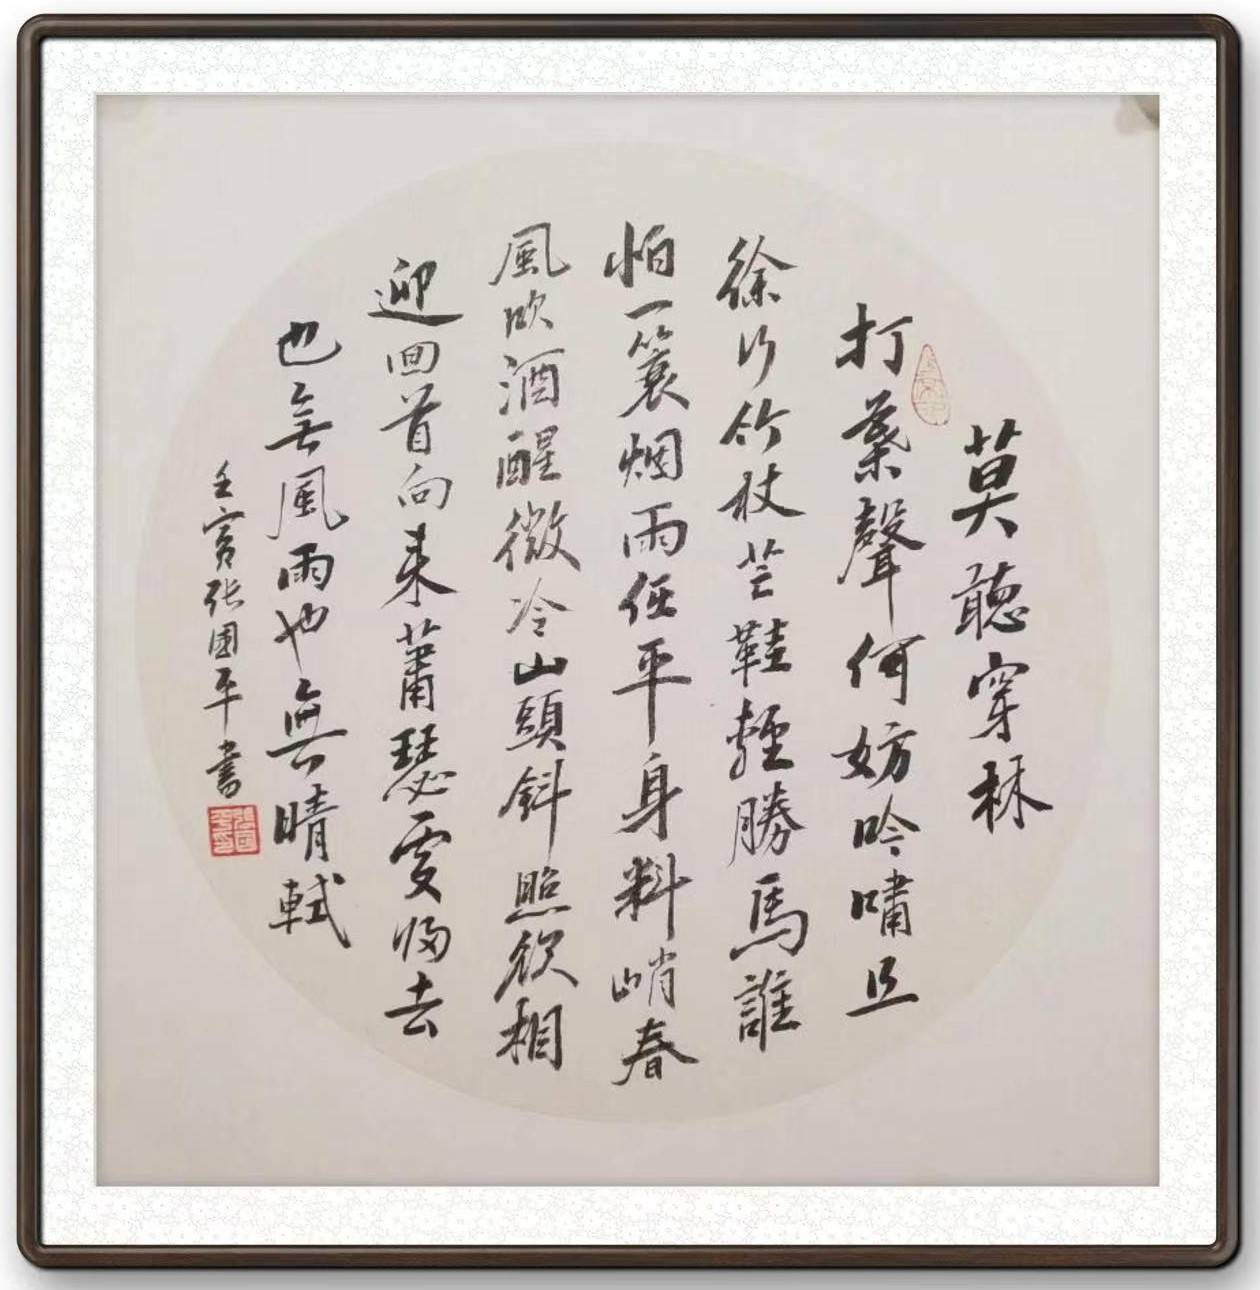 莫聽穿林
打葉聲何妨吟嘯且
徐行竹杖芒鞋輕勝馬誰
怕一簑烟雨任平身料峭春
風吹酒醒微冷山頭斜照欲相
迎回首向来蕭瑟處歸去
也無風雨也無晴軾
壬寅张國平書
張國平印